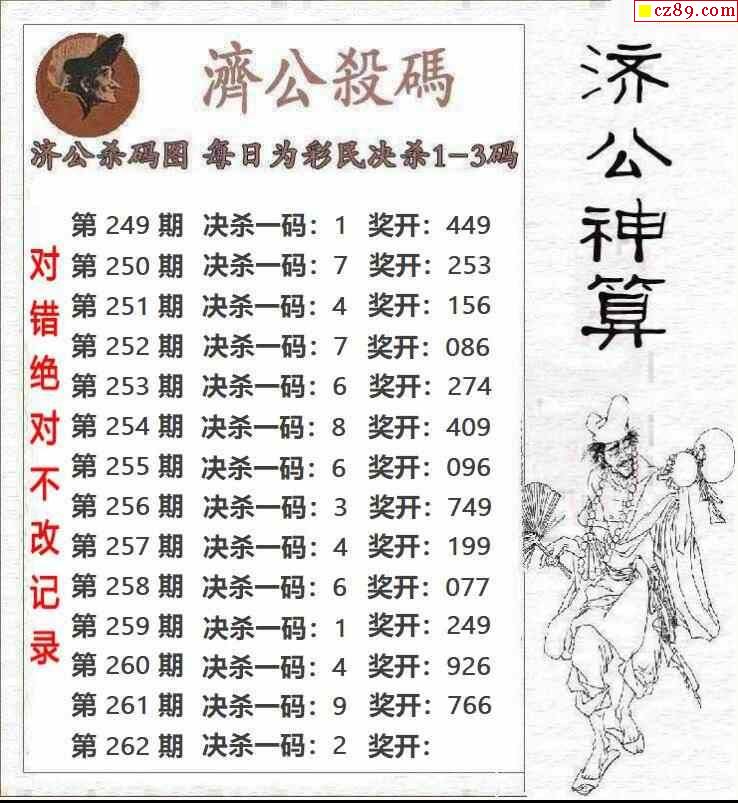 cz89.com
濟公殺碼
济公杀码图 每日为彩民决杀1-3码
第 249 期 决杀一码：1 奖开：449
第 250 期 决杀一码：7 奖开：253
第 251 期 决杀一码：4 奖开：156
第 252 期 决杀一码：7 奖开：086
第 253 期 决杀一码：6 奖开：274
第 254 期 决杀一码：8 奖开：409
第 255 期 决杀一码：6 奖开：096
第 256 期 决杀一码：3 奖开：749
第 257 期 决杀一码：4 奖开：199
第 258 期 决杀一码：6 奖开：077
第 259 期 决杀一码：1 奖开：249
第 260 期 决杀一码：4 奖开：926
第 261 期 决杀一码：9 奖开：766
第 262 期 决杀一码：2 奖开：
对错绝对不改记录
济公神算